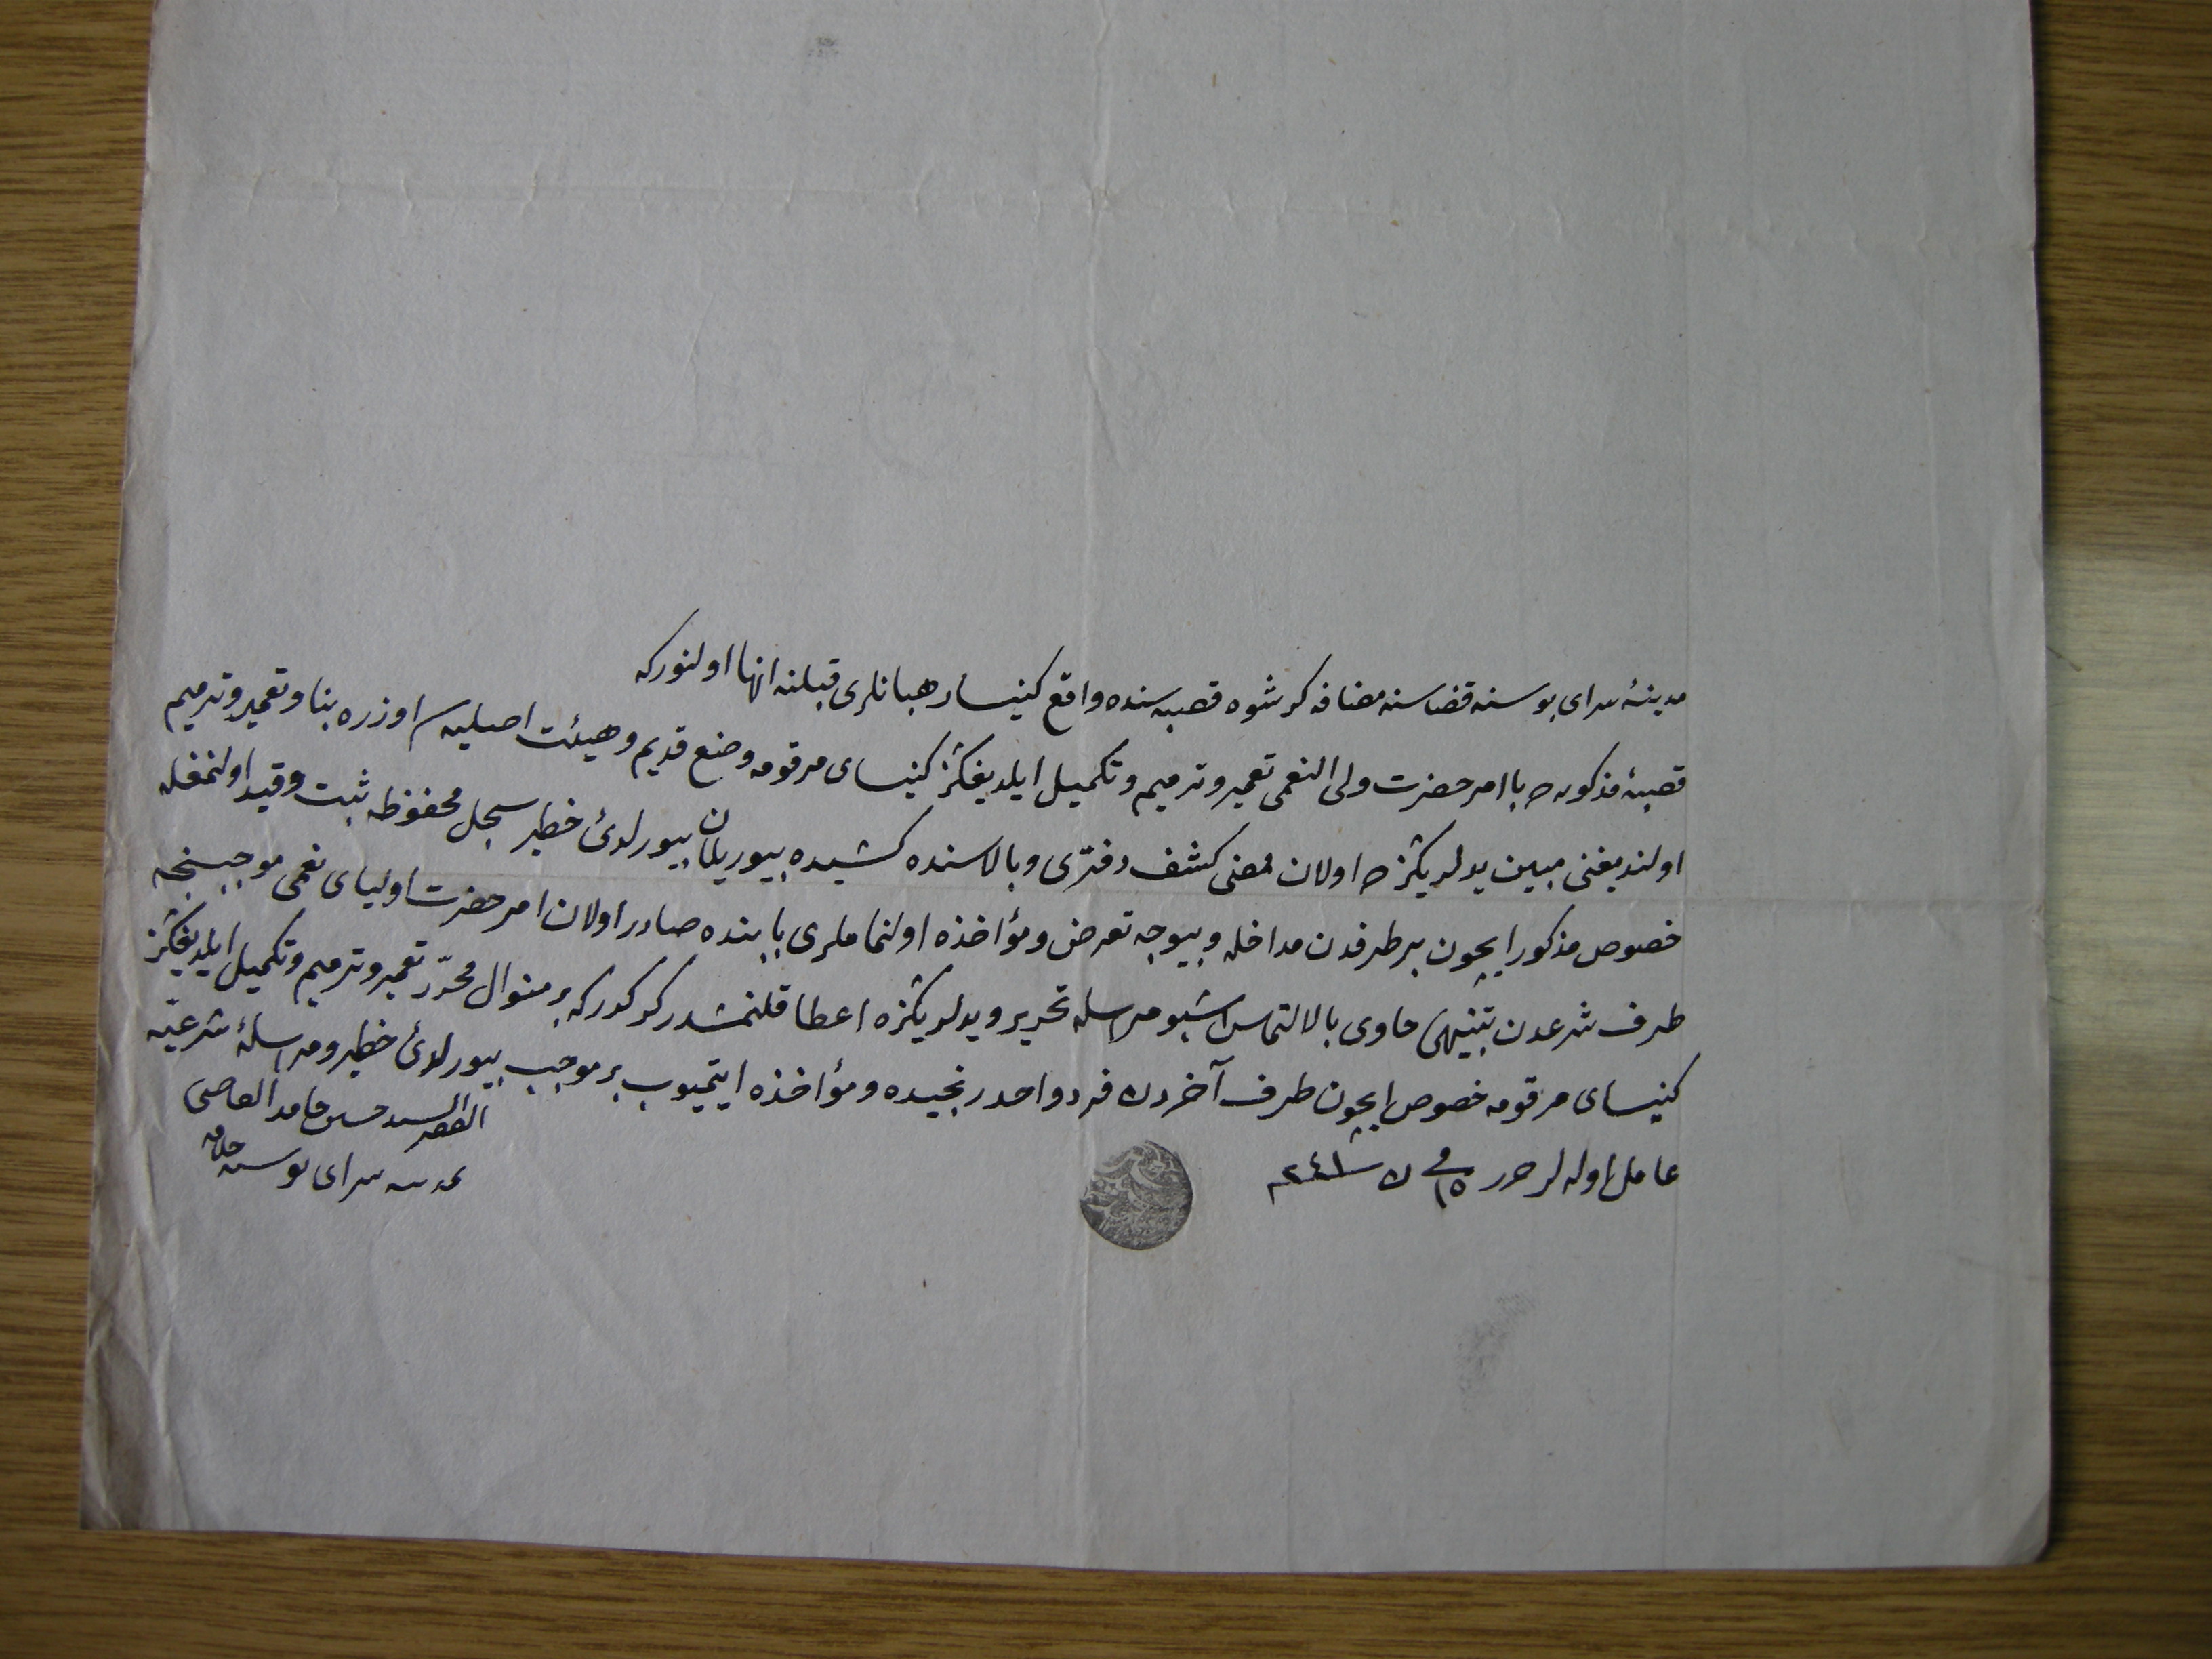 مدینۀ سرای بوسنه قضاسنه مضافه کرشوه قصبه سنده واقع کنیسا رهبانلری قبلنه انها اولنورکه
قصبۀ مذکوره ده با امر حضرت ولی النعمی تعمیر و ترمیم و تکمیل ایلدیفکز کنیسای مرقومه وضع قدیم و هیئت اصلیه سی اوزره بنا و تعمیر و ترمیم
اولندیغنی مبین یدلریکزده اولان ممضی کشف دفتری و بالاسنده کشیده بیوریلان بیورلدئ خطیر سجل محفوظه ثبت و قید اولنمغله
خصوص مذکور ایچون بر طرفدن مداخله و بیوجه تعرض و مؤاخذه اولنماملری بابنده صادر اولان امر حضرت اولیای نعمی موجبنجه
طرف شرعدن تنبیهی حاوی بالالتماس اشبو مراسله تحریر و یدلریکزه اعطا قلنمشدر کرکدرکه بر منوال محرّر تعمیر و ترمیم و تکمیل ایلدیفکز
کنیسای مرقومه خصوصی ایچون طرف آخردن فرد واحد رنجیده و مؤاخذه ایتمیوب بر موجب بیورلدئ خطیر و مراسلۀ شرعیّه
عامل اوله لر حرر فی ١٥ ن سنه ٢٤١
الفقیر السید حسن حامد القاضی
بمدینه سرای بوسنه